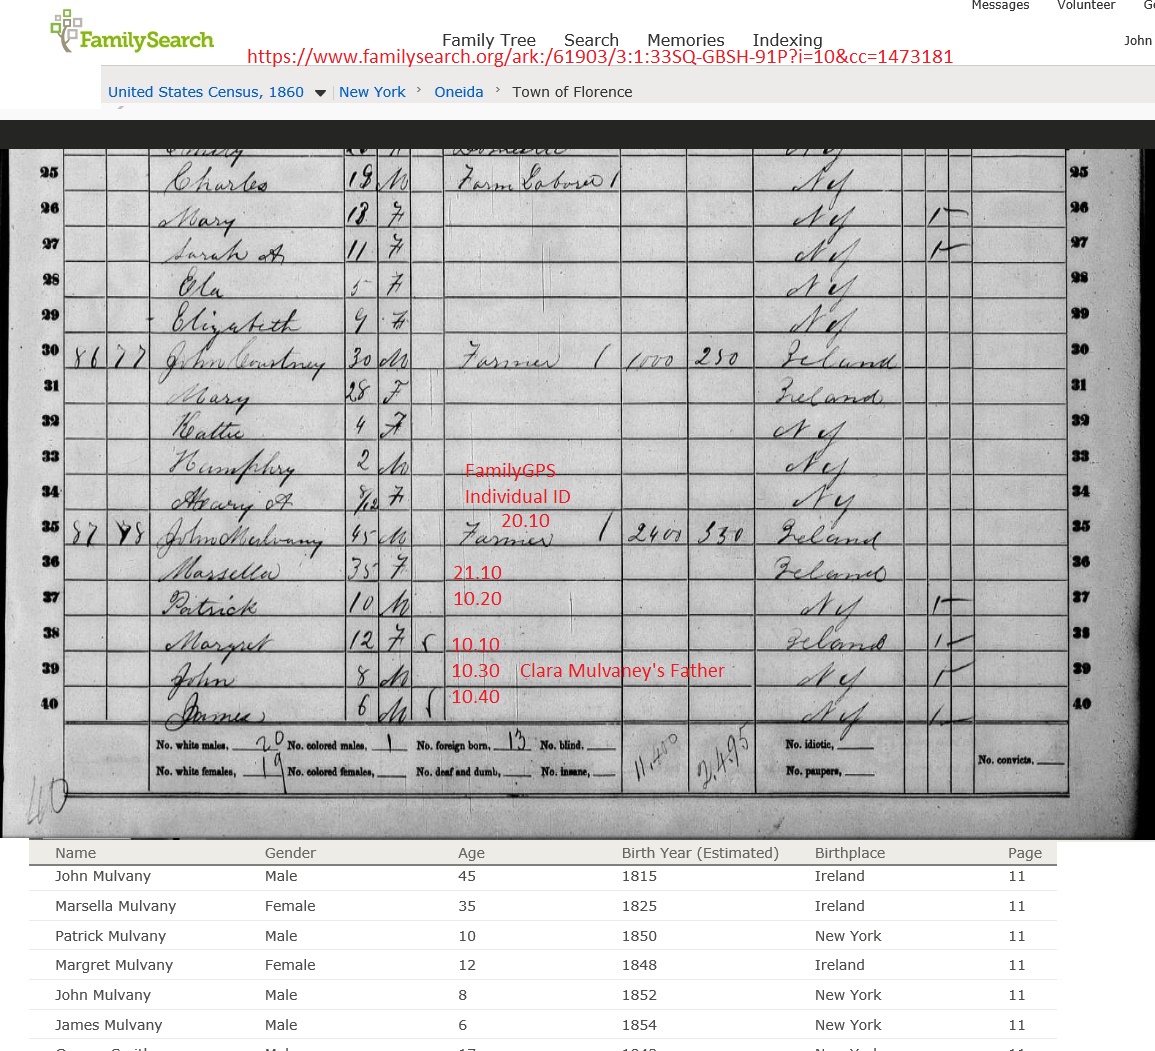 Messages Volunteer
FamilySearch
Family Tree Search Memories Indexing John
https://www.familysearch.org/ark:/61903/3:1:33SQ-GBSH-91P?i=10&cc=1473181
United States Census, 1860 New York › Oneida › Town of Florence
25 Charles 18 M Farm Laborer 1 Ny 25
26 Mary 13 F Ny 1 26
27 Sarah A 11 F Ny 1 27
28 Ela 5 F Ny 28
29 Elizabeth 9 F Ny 29
30 86 77 John Courtney 30 M Farmer 1 1000 250 Ireland 30
31 Mary 28 F Ireland 31
32 Kattie 4 F Ny 32
33 Humphry 2 M Ny 33
FamilyGPS
Individual ID
34 A 8/12 F Ny 34
20.10
35 87 78 John Mulvany 45 M Farmer 1 2400 330 Ireland 35
36 Marsella 35 F 21.10 Ireland 36
37 Patrick 10 M 10.20 Ny 1 37
38 Margret 12 F 10.10 Ireland 1 38
39 John 8 M 10.30 Clara Mulvaney's Father Ny 1 39
40 James 6 M 10.40 Ny 1 40
No. white males, 20 No. colored males, 1 No. foreign born, 13 No. blind, No. idiotic,
No. white females, 19 No. colored females, No. deaf and dumb, No. insane, 11,400 2,495 No. paupers, No. convicts,
40
Name Gender Age Birth Year (Estimated) Birthplace Page
John Mulvany Male 45 1815 Ireland 11
Marsella Mulvany Female 35 1825 Ireland 11
Patrick Mulvany Male 10 1850 New York 11
Margret Mulvany Female 12 1848 Ireland 11
John Mulvany Male 8 1852 New York 11
James Mulvany Male 6 1854 New York 11